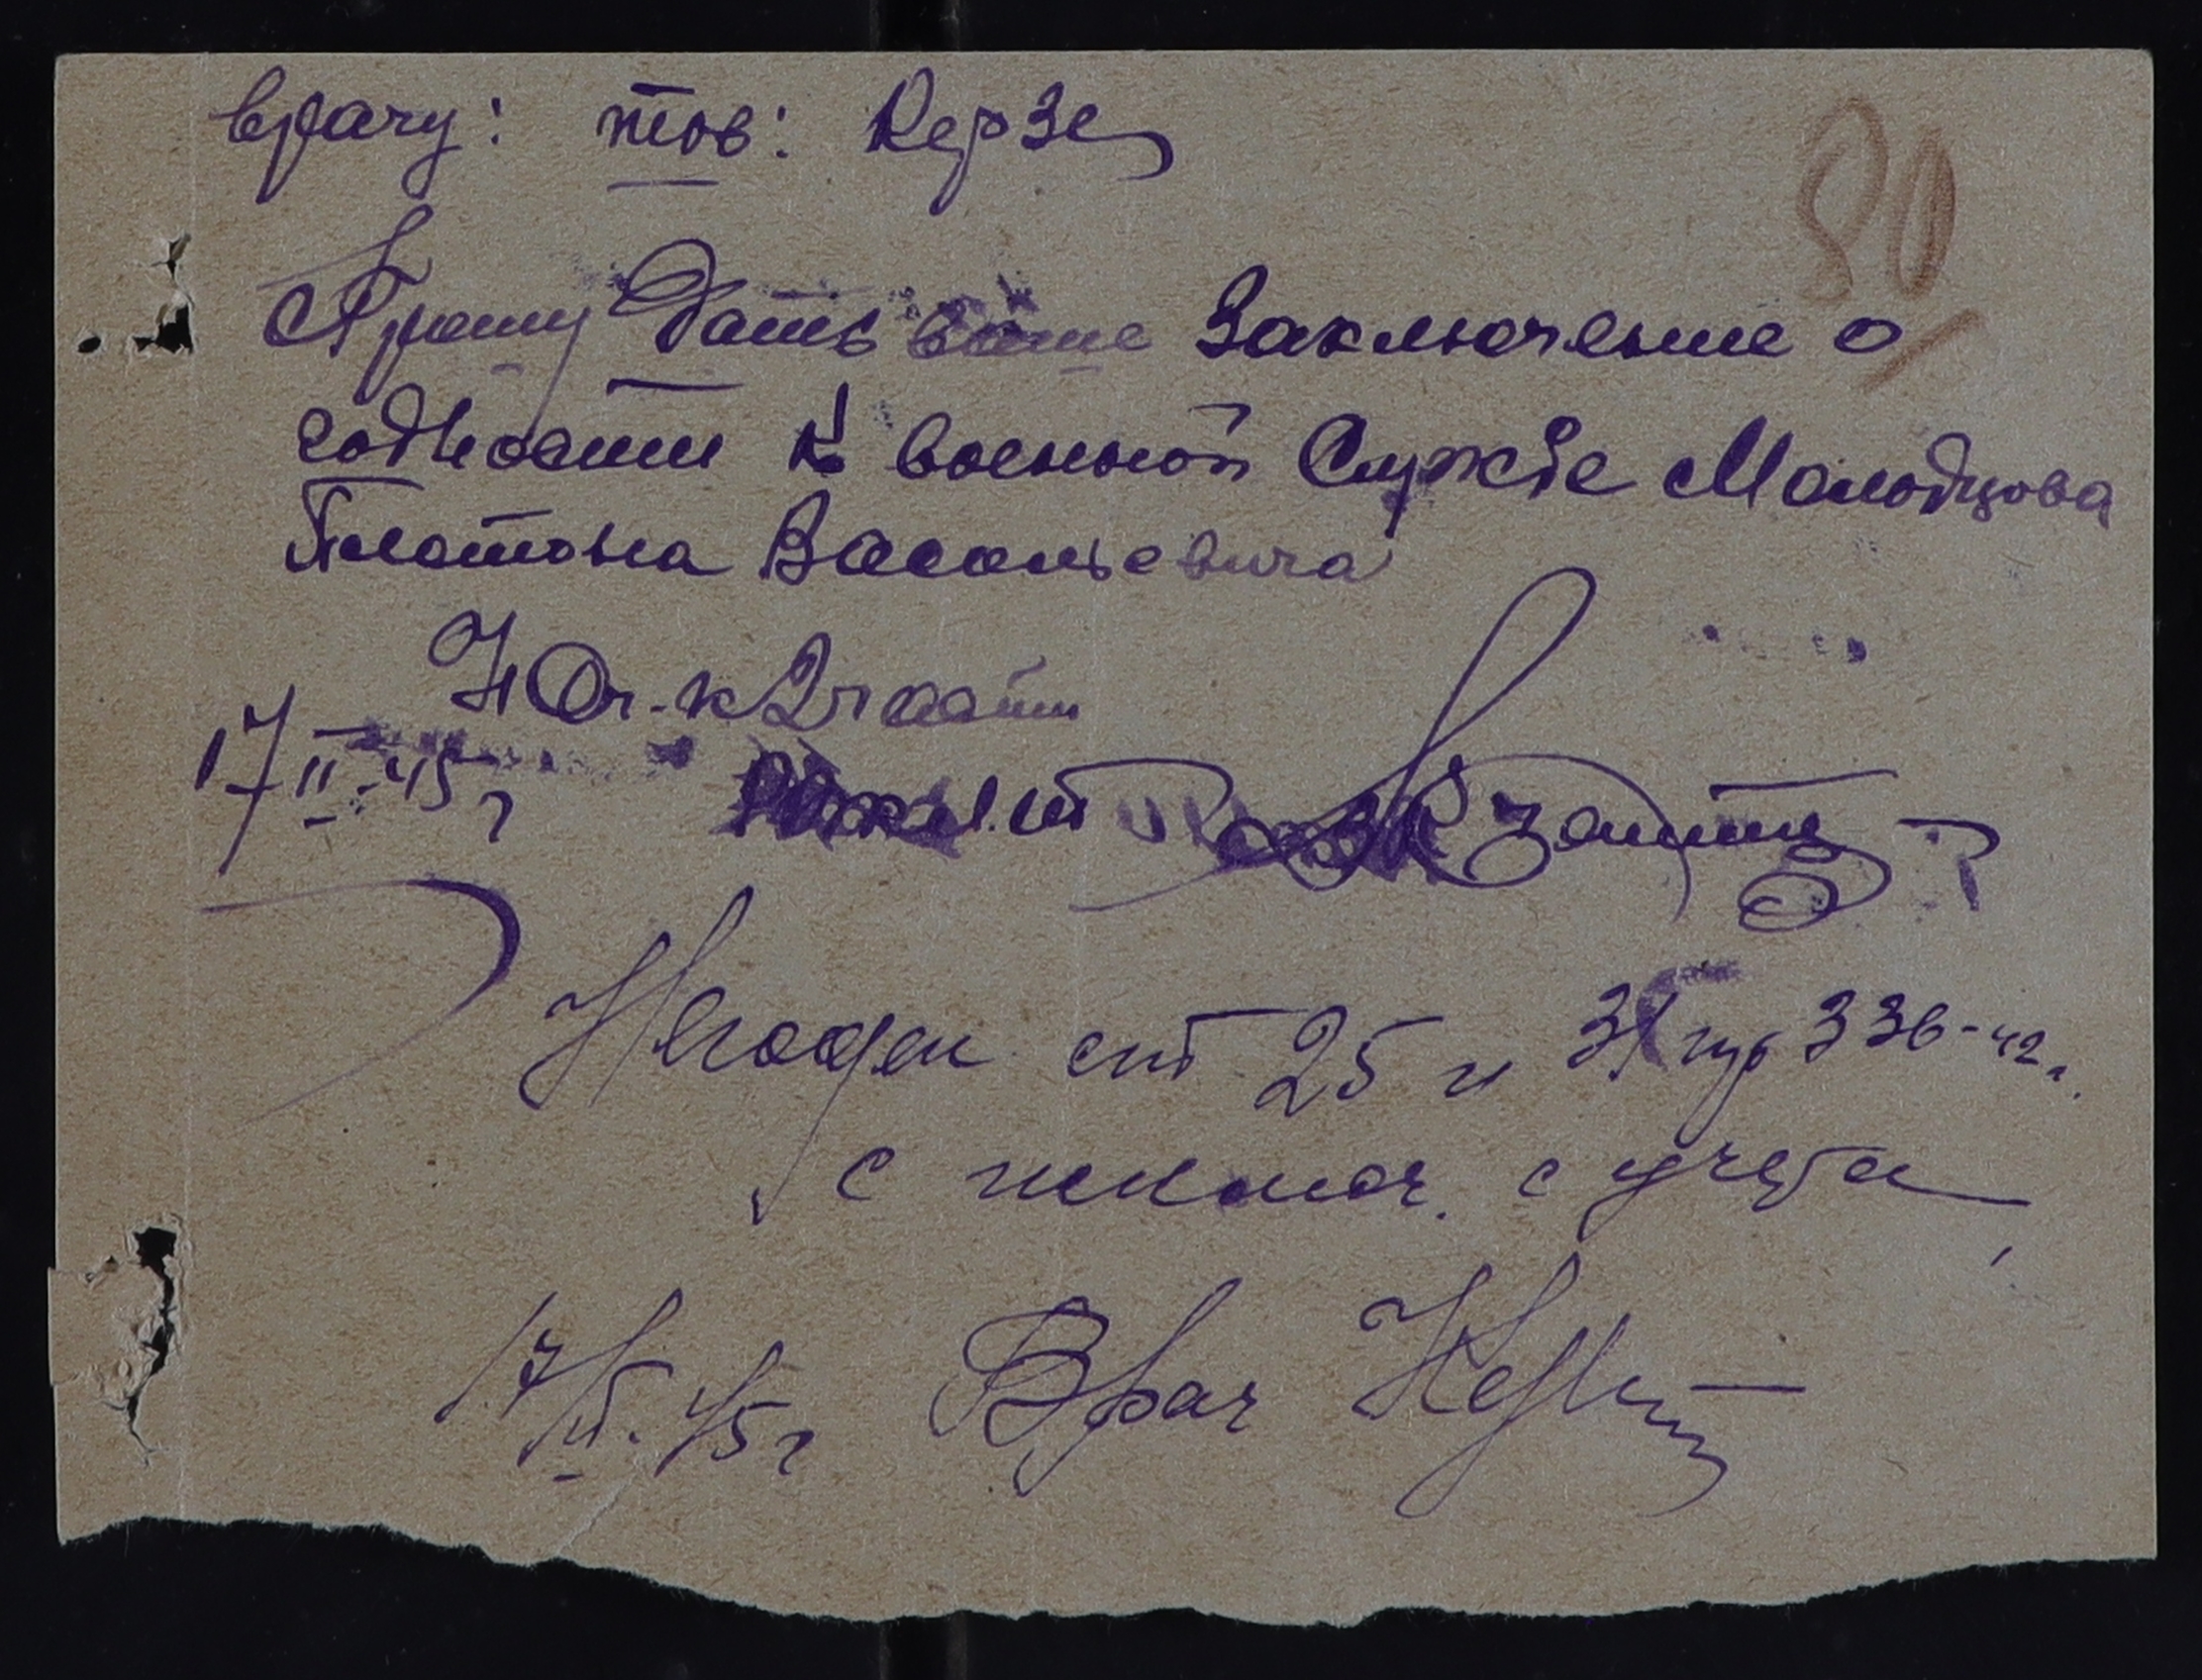 80
врачу: тов: Керзе
Прошу дать ваше Заключение о
годности к военной Службе Молодцова
Платона Васильевича
Нач-к 2 части
17/II-45 г
Негоден ст 25 и 31 пр 336-42 г.
с исключ. с учета
17/II.45 г Врач